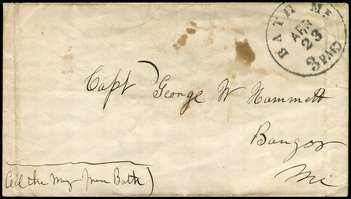 BATH Me
APR
23
3 PAID
Capt George W Hammett
Bangor
Me
(All the way from Bath)